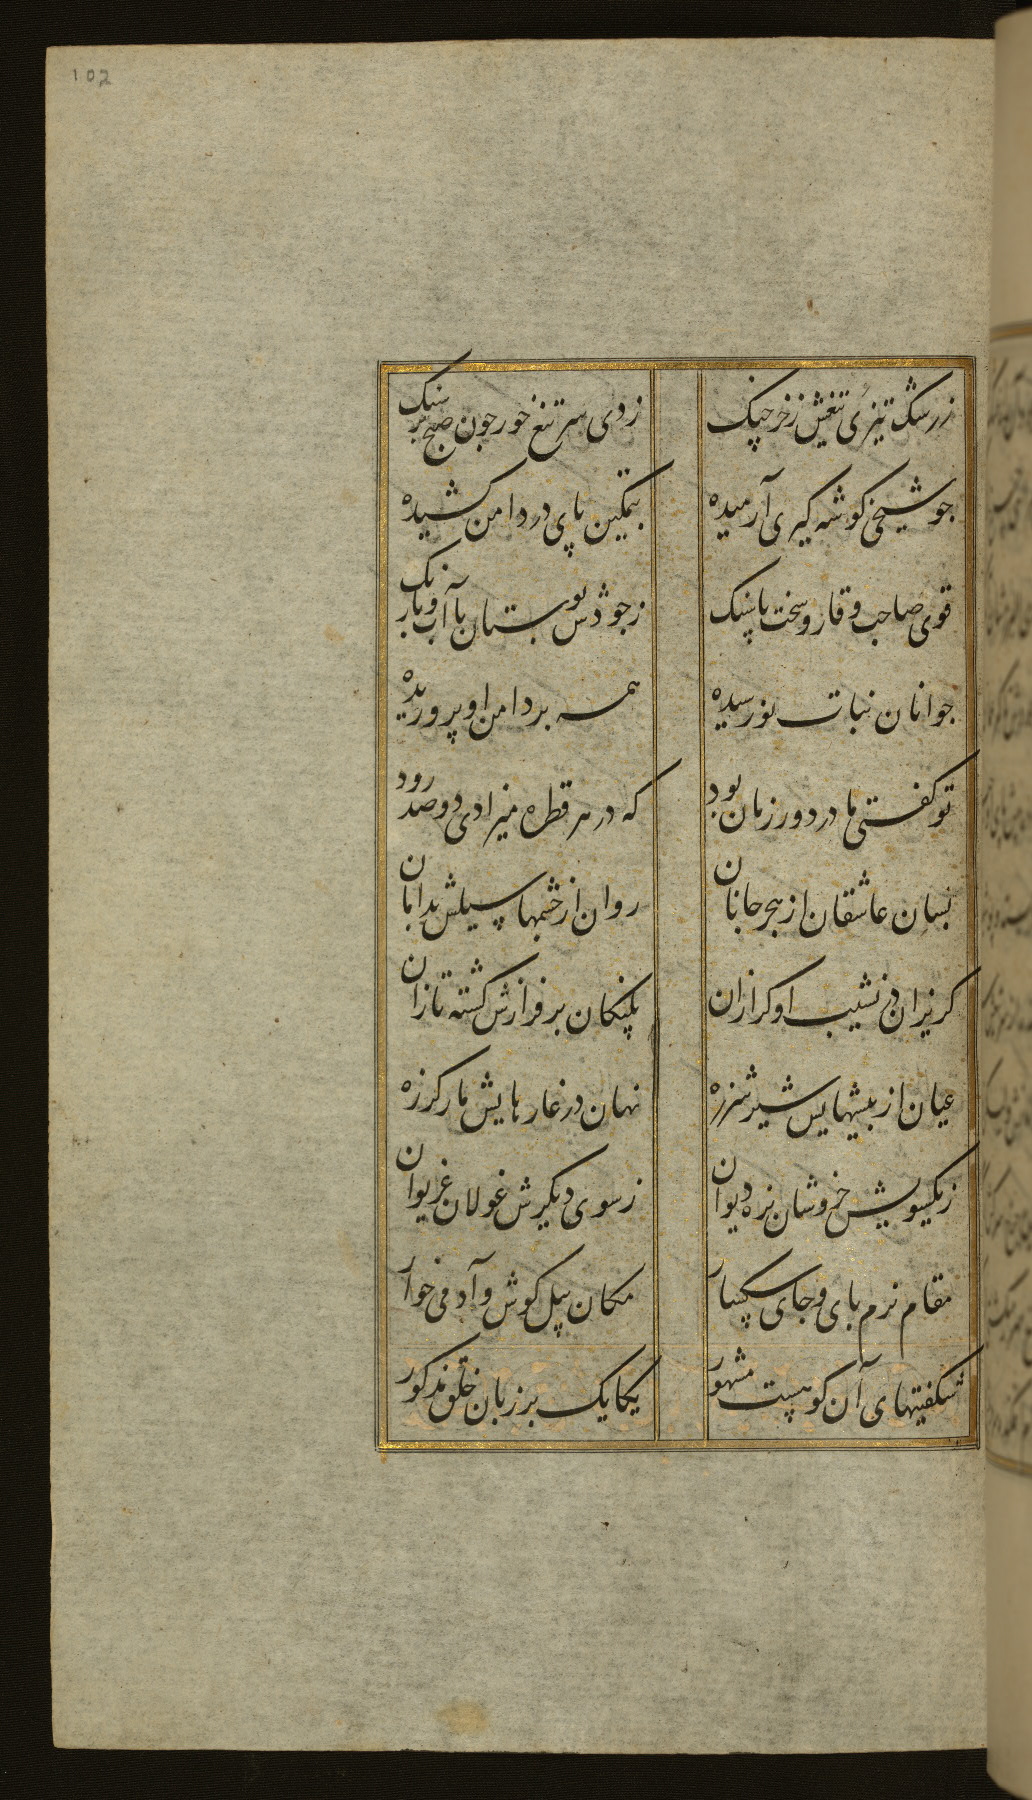 102
زرشک تیزی تیغش ز خرچنک
زدی سر تیغ خور چون صبح بر سنک
چو شیخی کوشه کیری آرمیده
بتمکین پای در دامن کشیده
قوی صاحب وقار و سخت پا سنک
ز جودش بوستان با آب و با رنک
جوانان نبات نورسیده
همه بر دامن او پروریده
تو کفتی مادر دور زمان بود
که در هر قطره میزادی دو صد رود
بسان عاشقان از هجر جانان
روان از چشمها سیلش بدامان
کریزان در نشیب او کرازان
پلنکان بر فرازش کشته تازان
عیان از بیشهایش شیر شرزه
نهان در غارهایش مار کرزه
ز یکسویش خروشان نره دیوان
ز سوی دیکرش غولان غریوان
مقام نرم پای و جای سکسار
مکان پیل کوش و آدمی خوار
شکفتیهای آن کوهیست مشهور
یکایک بر زبان خلق مذکور